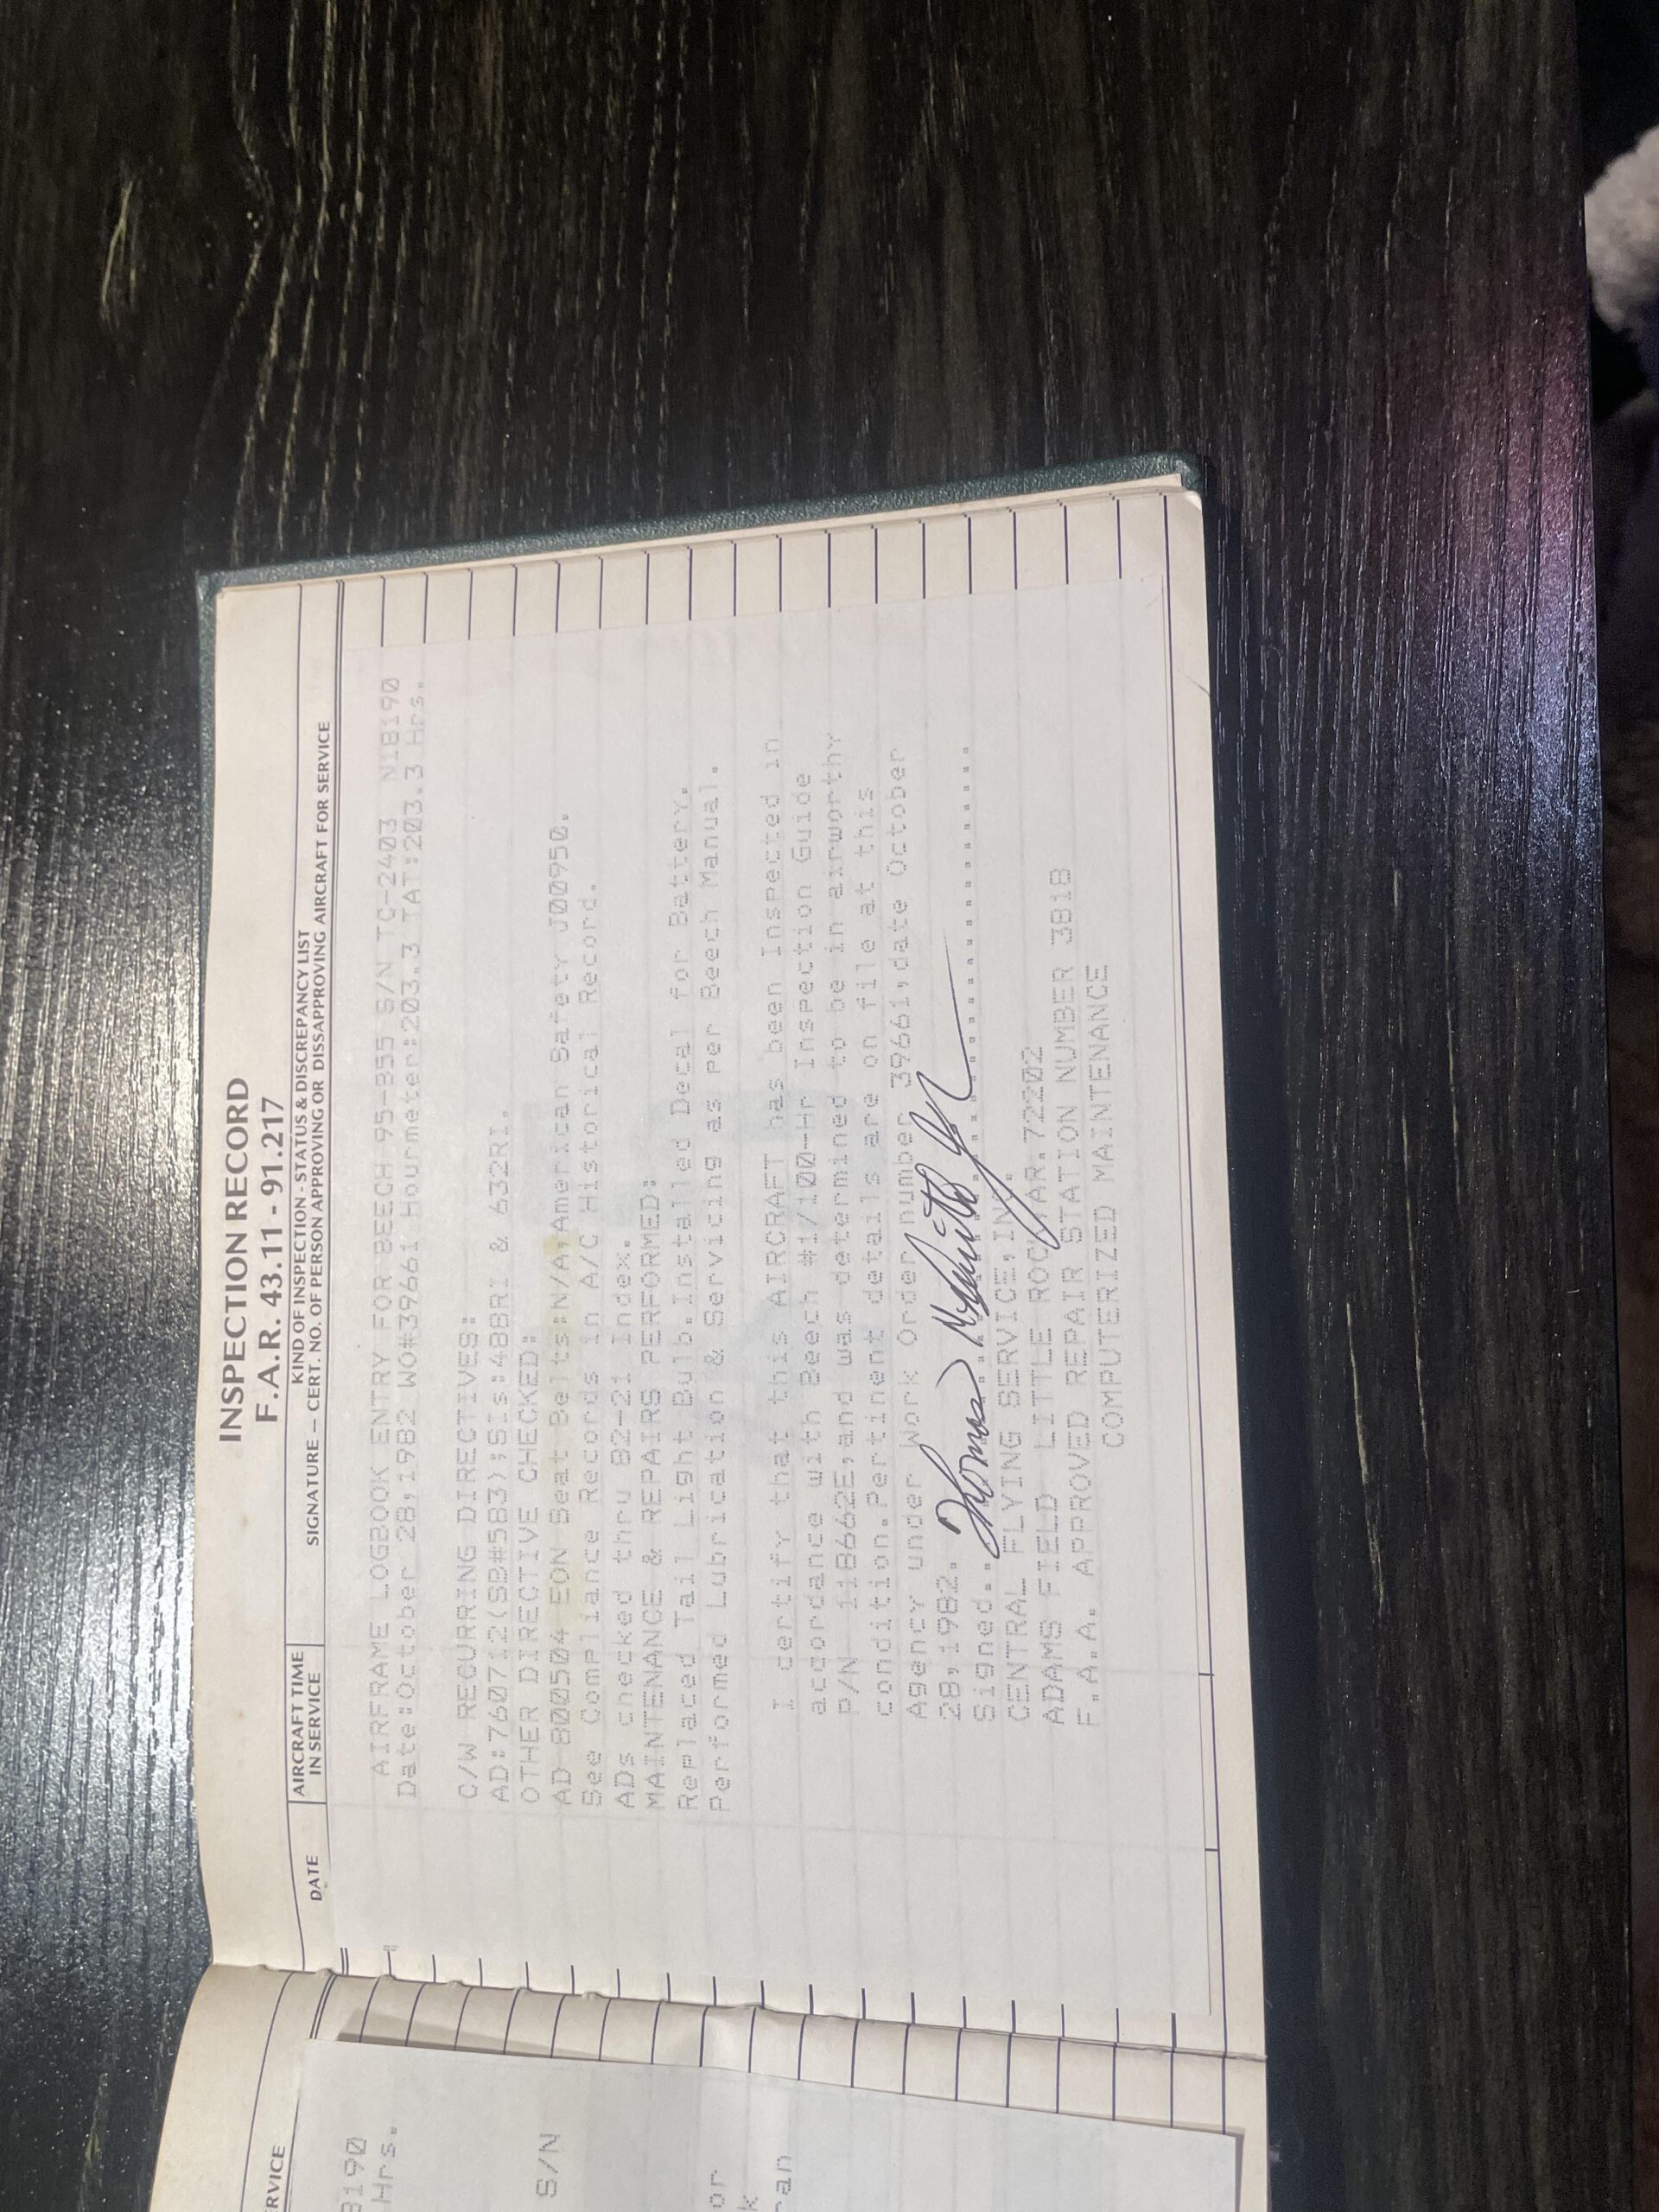 INSPECTION RECORD
F.A.R. 43.11 - 91.217
DATE
AIRCRAFT TIME
IN SERVICE
KIND OF INSPECTION - STATUS & DISCREPANCY LIST
SIGNATURE — CERT. NO. OF PERSON APPROVING OR DISAPPROVING AIRCRAFT FOR SERVICE
AIRFRAME LOGBOOK ENTRY FOR BEECH 95-B55 S/N TC-2403 N18190
Date:October 28,1982 WO#39661 Hourmeter:203.3 TAT:203.3 Hrs.
C/W RECURRING DIRECTIVES:
AD:760712(SB#583);SIs:488RI & 632RI.
OTHER DIRECTIVE CHECKED:
AD 800504 EON Beat Belts:N/A,American Safety J00950.
See Compliance Records in A/C Historical Record.
ADs checked thru 82-21 Index.
MAINTENANCE & REPAIRS PERFORMED:
Replaced Tail Light Bulb.Installed Decal for Battery.
Performed Lubrication & Servicing as per Beech Manual.
I certify that this AIRCRAFT has been Inspected in
accordance with Beech #1/100-Hr Inspection Guide
P/N 118662E,and was determined to be in airworthy
condition.Pertinent details are on file at this
Agency under Work Order number 39661,date October
28,1982.
Signed..
CENTRAL FLYING SERVICE,INC.
ADAMS FIELD LITTLE ROCK,AR.72202
F.A.A. APPROVED REPAIR STATION NUMBER 3818
COMPUTERIZED MAINTENANCE
RVICE
8190
Hrs.
S/N
or
k
an